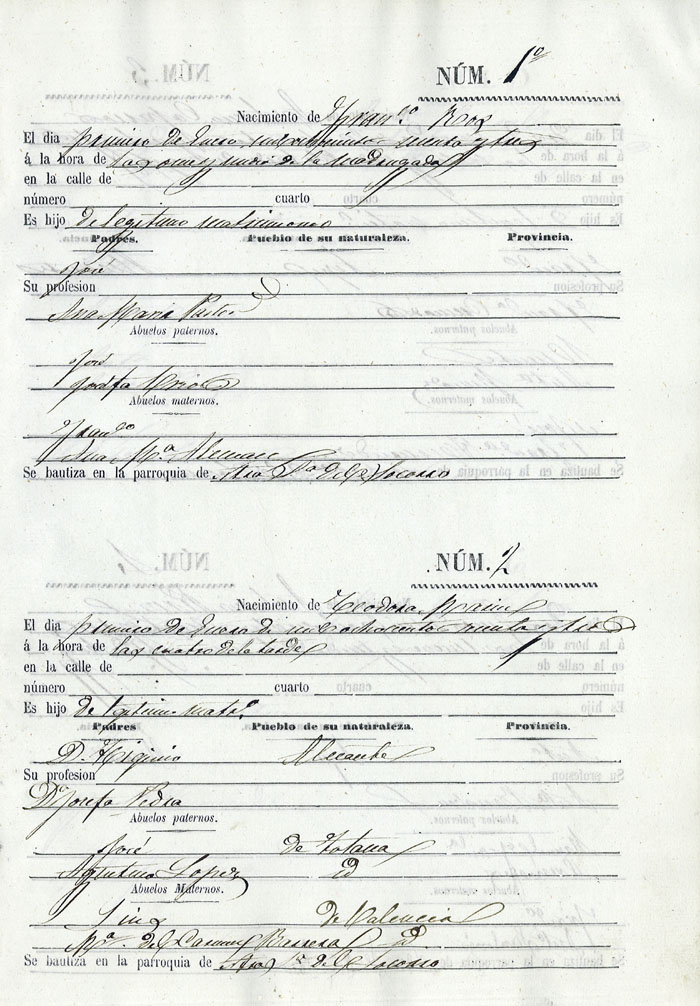 NÚM. 1º
Nacimiento de Franco. Ros
El dia primero de Enero mil ochocientos y tres
á la hora de las once y media de la Madrugada
en la calle de
número cuarto
Es hijo de legitimo matrimonio
Padres. Pueblo de su naturaleza. Provincia.
José
Su profesion
Ana Maria Pastor
Abuelos paternos.
José
Josefa
Abuelos maternos.
Franco
Ana Mª. Aleman
Se bautiza en la parroquia de Ntra Sra del Socorro
NÚM. 2
Nacimiento de Teodora Marin
El dia primero de Enero de mil ochocientos y tres
á la hora de las cuatro de la tarde
en la calle de
número cuarto
Es hijo de legitimo matro.
Padres Pueblo de su naturaleza. Provincia.
D. Higinio Alicante
Su profesion
Dª Josefa
Abuelos paternos.
José de Totana
Agustina Lopez id
Abuelos Maternos.
Lino de Valencia
Mª. del Carmen Barrera id
Se bautiza en la parroquia de Ntra Sra del Socorro